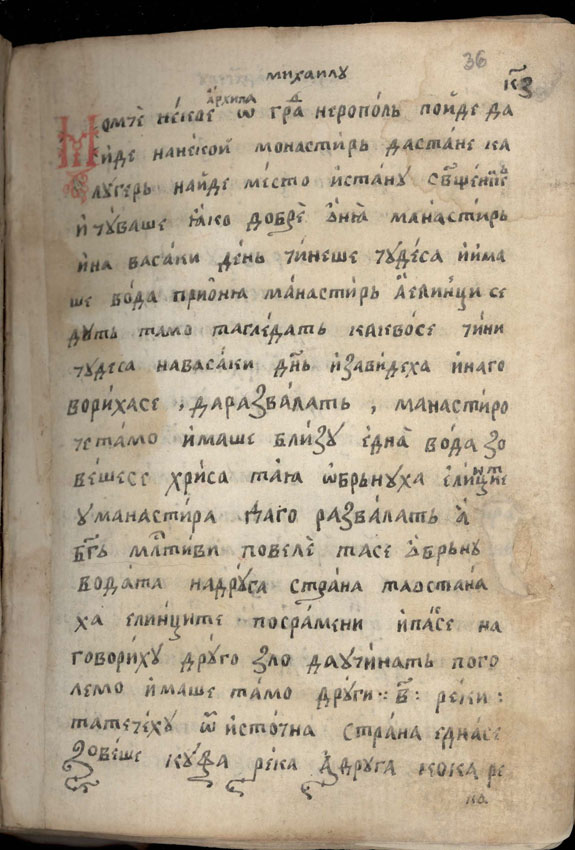 михаилу
36
к҃з
архипа
Момче некое ѿ гра҃д нерополь пойде да
ѝиде нанекой монастирь дастане ка
лугерь найде место истану
ѝ чуваше ꙗко добрѐ манастирь
ѝна васаки день чинеше чудеса ѝима
ше вода прионꙗ манастирь а҆елинци се
дуть тамо тагледать каквосе чини
чудеса навасаки дн҃ь изавидеха инаго
ворихасе , даразвалать , манастиро
четамо имаше близу една вода зо
вешесе хриса таꙗ ѡбрьнуха елинците
у манастира даго развалать а
бг҃ь мл҃тиви повелѐ тасе ѡбрьну
водата надруга страна таостана
ха елинците посрамени ѝпа҃се на
говориху друго зло даучинать пого
лемо имаше тамо други :: в҃ : реки :
татечеху ѿ источна страна еднасе
зовеше куфа река адруга кока ре
ка.